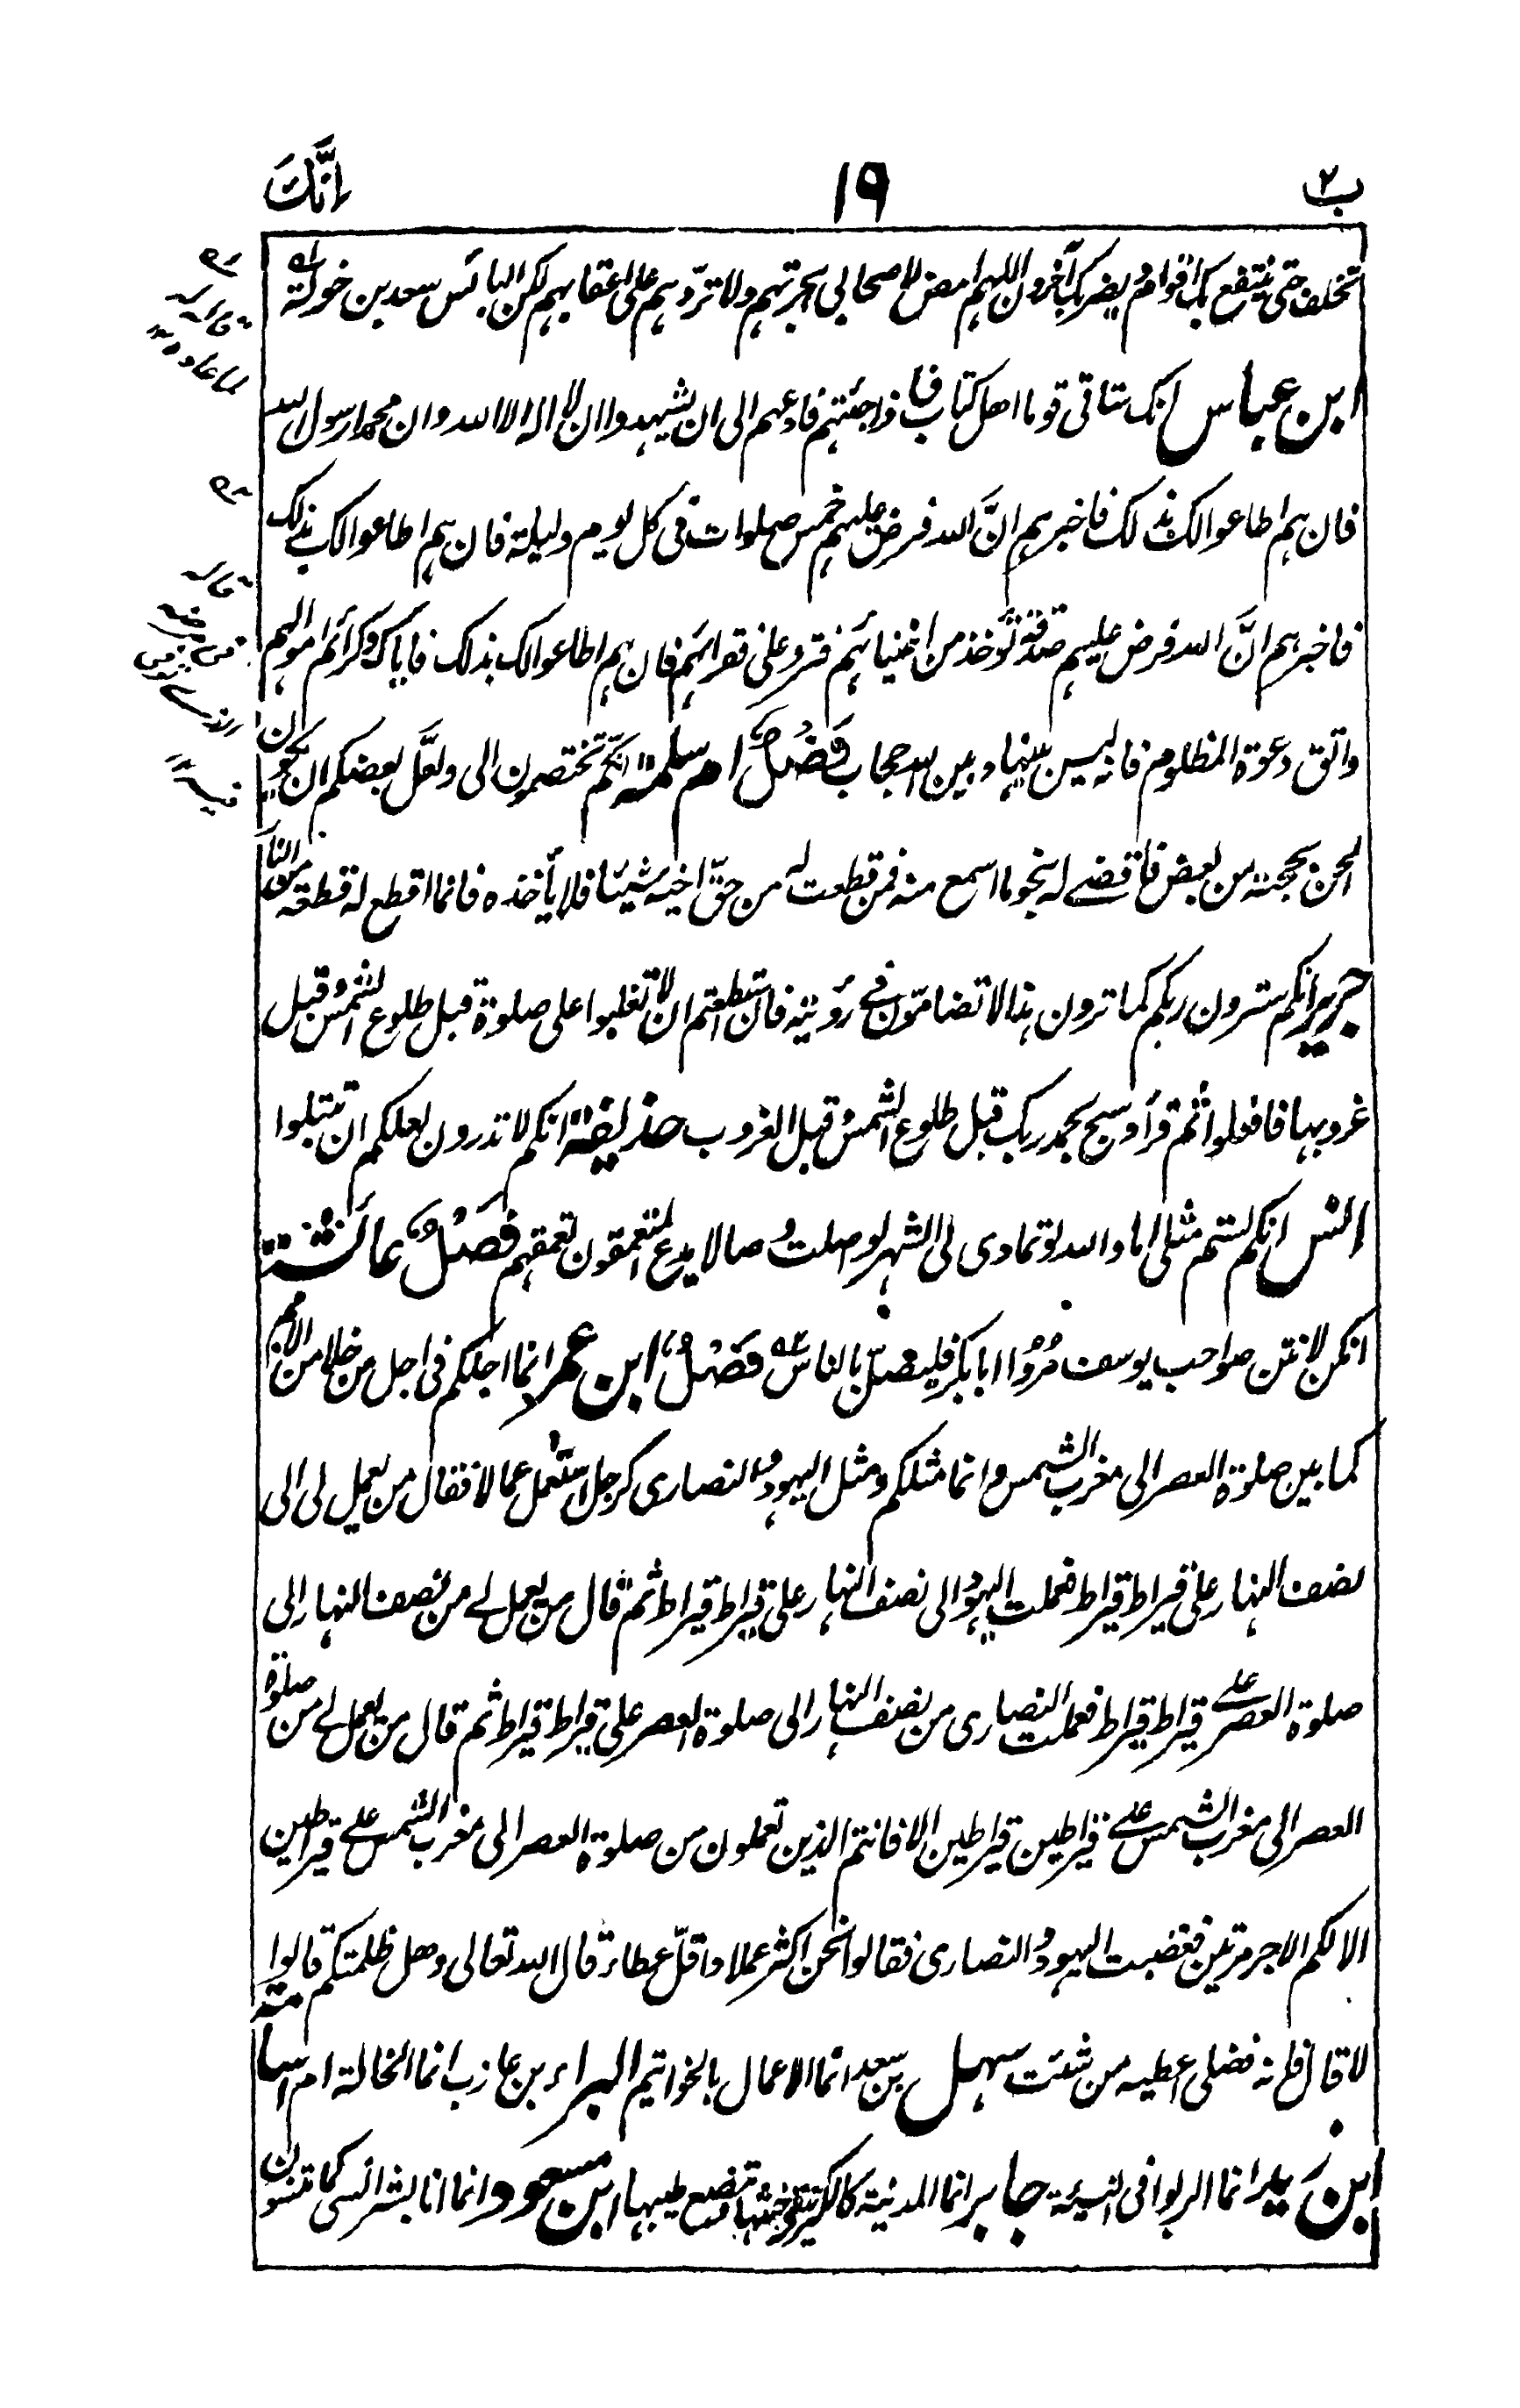 ب۲ ۱۹ اِنَّكَ
تخلف حتى ينتفع بك اقوام ويضر بك آخرون اللهم امض لاصحابي هجرتهم ولا تردّهم على اعقابهم لكن البائس سعد بن خولة
ابن عباس انك ستاتى قوما اهل كتاب فاذا جئتهم فادعهم الى ان يشهدوا ان لا اله الا الله وان محمدا رسول الله
فان هم اطاعوا لك بذلك فاخبرهم انَّ الله فرض عليهم خمس صلوات فى كل يوم وليلة فان هم اطاعوا لك بذلك
فاخبرهم انَّ الله فرض عليهم صدقة تؤخذ من اغنيائهم فترد على فقرائهم فان هم اطاعوا لك بذلك فاياك وكرائم اموالهم
واتق دعوة المظلوم فانه ليس بينها وبين الله حجاب فَصْلٌ ام سلمة انكم تختصمون الى ولعلَّ بعضكم ان يكون
الحن بحجته من بعض فاقضے له بنحو ما اسمع منه فمن قطعت له من حقّ اخيه شيئا فلا يأخذه فانما اقطع له قطعة من النار
جرير انكم سترون ربكم كما ترون هذا لا تضامّون فے رؤيته فان استطعتم ان لا تغلبوا على صلوة قبل طلوع الشمس وقبل
غروبها فافعلوا ثم قرأ وسبح بحمد ربك قبل طلوع الشمس وقبل الغروب حذيفة انكم لا تدرون لعلكم ان تبتلوا
انس انكم لستم مثلى اما والله لو تمادى لى الشهر لواصلت وصالا يدع المتعمقون تعمقهم فَصْلٌ عائشة
انكن لانتن صواحب يوسف مُرُوا ابا بكر فليصلّ بالناس فَصْلٌ ابن عمر انما اجلكم فى اجل من خلا من الامم
كما بين صلوة العصر الى مغرب الشمس وانما مثلكم ومثل اليهود والنصارى كرجل استعمل عمالا فقال من يعمل لى الى
نصف النهار على قيراط قيراط فعملت اليهود الى نصف النهار على قيراط قيراط ثم قال من يعمل لے من نصف النهار الى
صلوة العصر علے قيراط قيراط فعملت النصارى من نصف النهار الى صلوة العصر على قيراط قيراط ثم قال من يعمل لے من صلوة
العصر الى مغرب الشمس علے قيراطين قيراطين الا فانتم الذين تعملون من صلوة العصر الى مغرب الشمس علے قيراطين
الا لكم الاجر مرتين فغضبت اليهود والنصارى فقالوا نحن اكثر عملا واقلّ عطاء قال الله تعالى وهل ظلمتكم قالوا
لا قال فانه فضلى اعطيه من شئت سهل بن سعد انما الاعمال بالخواتيم البراء بن عازب انما الخالة ام اسامة
ابن زيد انما الربوا فى النسيئة جابر انما المدينة كالكير تنفى خبثها وتنصع طيبها ابن مسعود انما انا بشر انسى كما تنسون